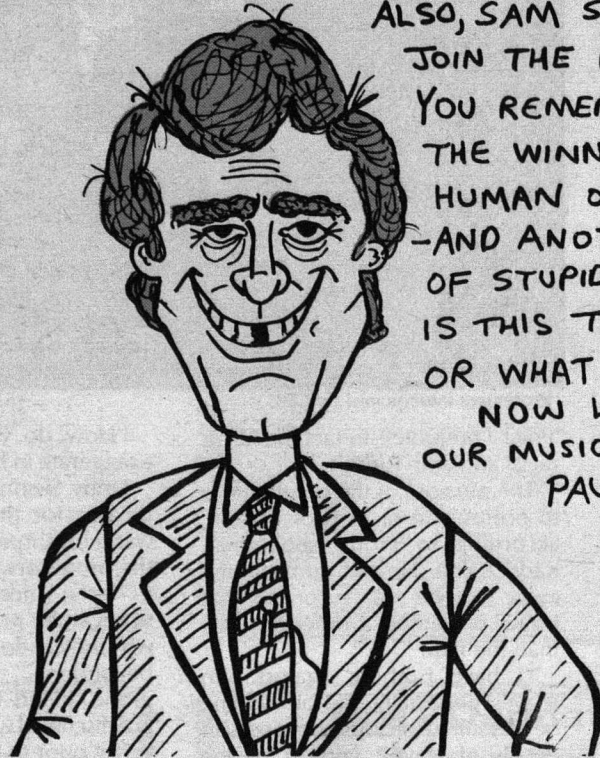 ALSO, SAM S
JOIN THE
YOU REMEM
THE WINN
HUMAN O
-AND ANOT
OF STUPID
IS THIS T
OR WHAT
NOW
OUR MUSIC
PAU